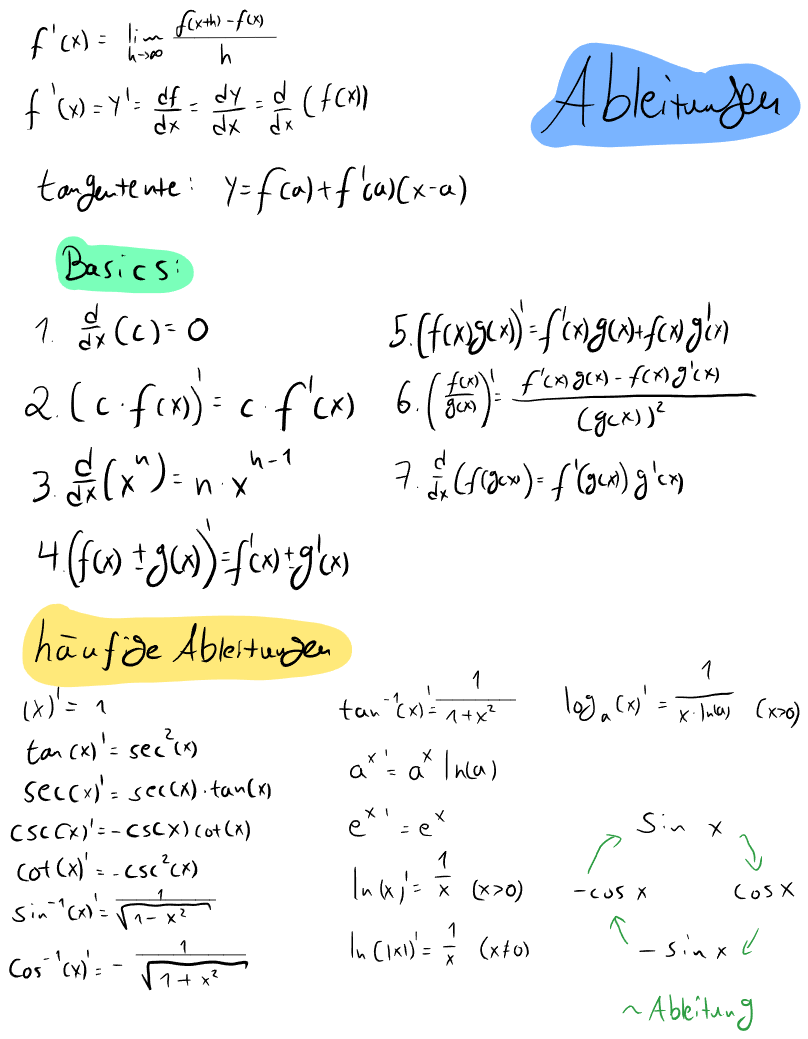 Ableitungen
f'(x) = lim h→∞ (f(x+h) - f(x)) / h
f'(x) = y' = df/dx = dy/dx = d/dx (f(x))
tangentente: y = f(a) + f'(a)(x-a)
Basics:
1. d/dx (c) = 0
2. (c · f(x))' = c · f'(x)
3. d/dx (x^n) = n · x^(n-1)
4. (f(x) ± g(x))' = f'(x) ± g'(x)
5. (f(x)g(x))' = f'(x)g(x) + f(x)g'(x)
6. (f(x)/g(x))' = (f'(x)g(x) - f(x)g'(x)) / (g(x))²
7. d/dx (f(g(x)) = f'(g(x)) g'(x)
häufige Ableitungen
(x)' = 1
tan(x)' = sec²(x)
sec(x)' = sec(x) · tan(x)
csc(x)' = -csc x) cot(x)
cot(x)' = -csc²(x)
sin⁻¹(x)' = 1/√(1-x²)
cos⁻¹(x)' = - 1/√(1+x²)
tan⁻¹(x)' = 1/(1+x²)
a^x' = a^x ln(a)
e^x' = e^x
ln(x)' = 1/x (x>0)
ln(|x|)' = 1/x (x≠0)
log_a(x)' = 1/(x·ln(a)) (x>0)
sin x
-cos x cos x
- sin x
~ Ableitung